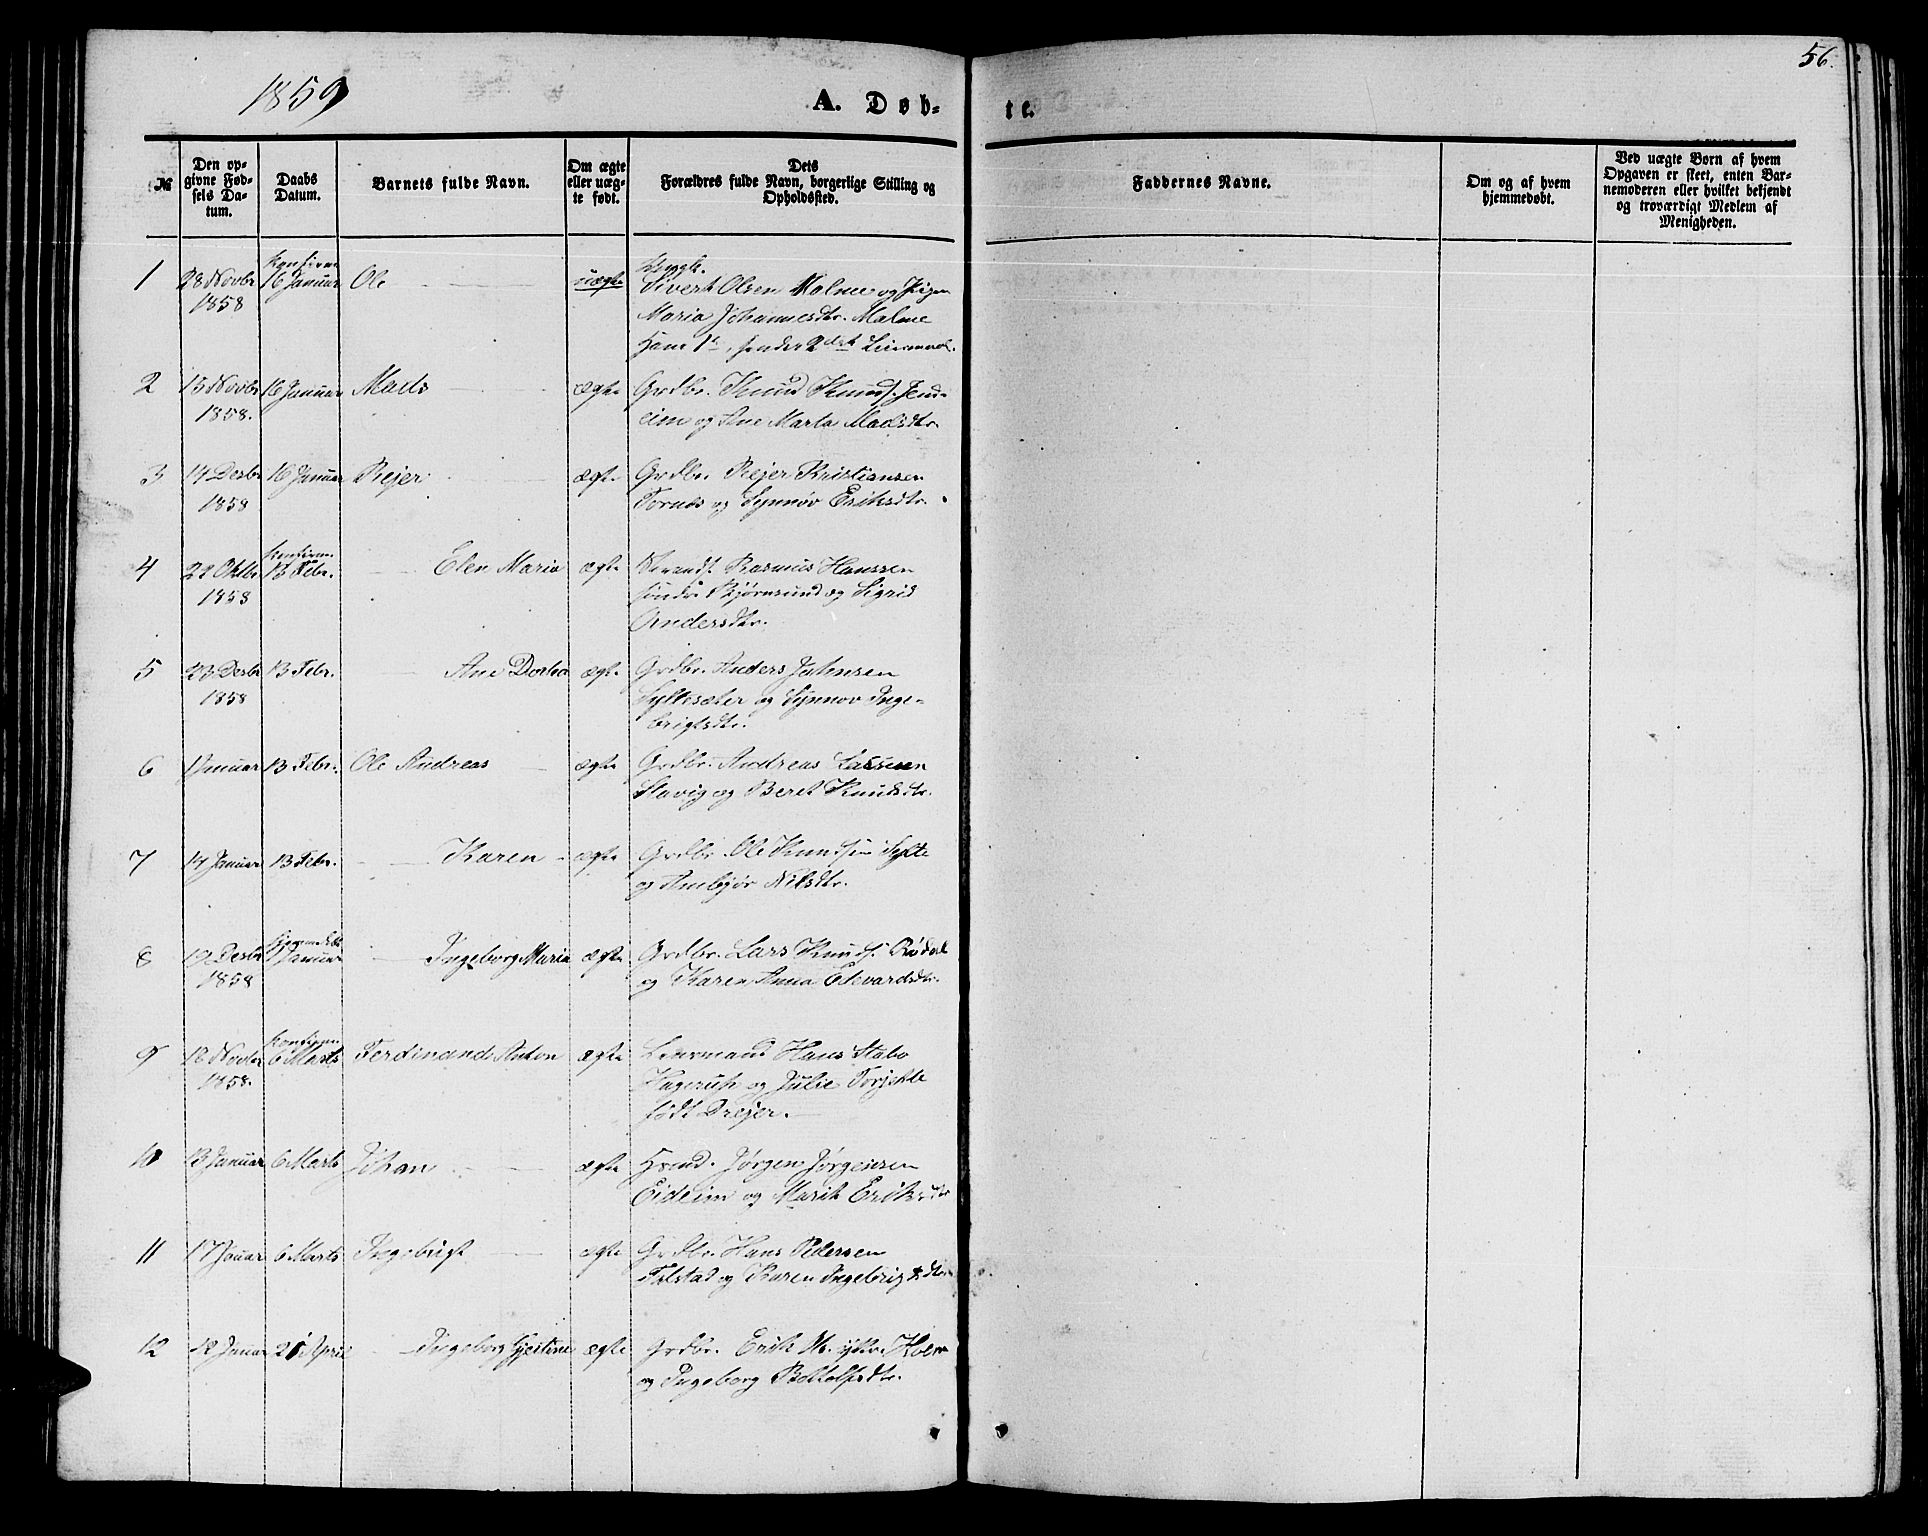 56.
1859
A. Døb-
te.
№
Den op-
givne Fød-
sels Da-
tum.
Daabs
Datum.
Barnets fulde Navn.
Om ægte
eller uæg-
te født.
Dets
Forældres fulde Navn, borgerlige Stilling og
Opholdssted.
Faddernes Navne.
Om og af hvem
hjemmedøbt.
Ved uægte Børn af hvem
Opgaven er skeet, enten Bar-
nemoderen eller hvilket bekjendt
og troværdigt Medlem af
Menigheden.
1
28 Novbr
1858
Konfirm
16 Januar
Ole
uægte
Ungk.
Sivert Olsen Malme og Pigen
Maria Johannesdtr. Malme
Hans 1ste, hendes 2det Leiermaal.
2
15 Novbr
1858.
16 Januar
Mads
ægte
Grdbr. Knud Knuds. Jend-
eim og Ane Marta Madsdtr.
3
14 Desbr
1858
16 Januar
Rejer
ægte
Grdbr. Rejer Kristiansen
Tornes og Synnøv Eriksdtr.
4
29 Oktbr
1858
Konfirm.
13 Febr.
Elen Maria
ægte
Strands. Rasmus Hanssen
søndr. Bjørnsund og Sigrid
Andersdtr.
5
23 Desbr
1858
13 Febr.
Ane Dortea
ægte
Grdbr. Anders Johnsen
Syltesæter og Synnøv Inge-
brigtsdtr.
6
1 Januar
13 Febr.
Ole Andreas
ægte
Grdbr. Andreas Larssen
Stavig og Beret Knudsdtr.
7
14 Januar
13 Febr.
Karen
ægte
Grdbr. Ole Knudsen Sylte
og Ambjør Nilsdtr.
8
19 Desbr
1858
Hjemmedøbt
1 Januar
Ingeborg Maria
ægte
Grdbr. Lars Knuds. Rødal
og Karen Anna Edevardsdtr.
9
18 Novbr
1858.
Konfirm
6 Marts
Ferdinand Anton
ægte
Lensmand Hans Stabo
Hagerup og Julie Torjette
født Drejer.
10
13 Januar
6 Marts
Johan
ægte
Hsmd. Jørgen Jørgensen
Eideim og Marit Eriksdtr
11
17 Januar
6 Marts
Ingebrigt
ægte
Grdbr. Hans Pedersen
Tolstad og Karen Ingebrigtsdtr.
12
18 Januar
21 April
Ingeborg Gjertine
ægte
Grdbr. Erik M. ytr. Holm
og Ingeborg Bottolfsdtr.